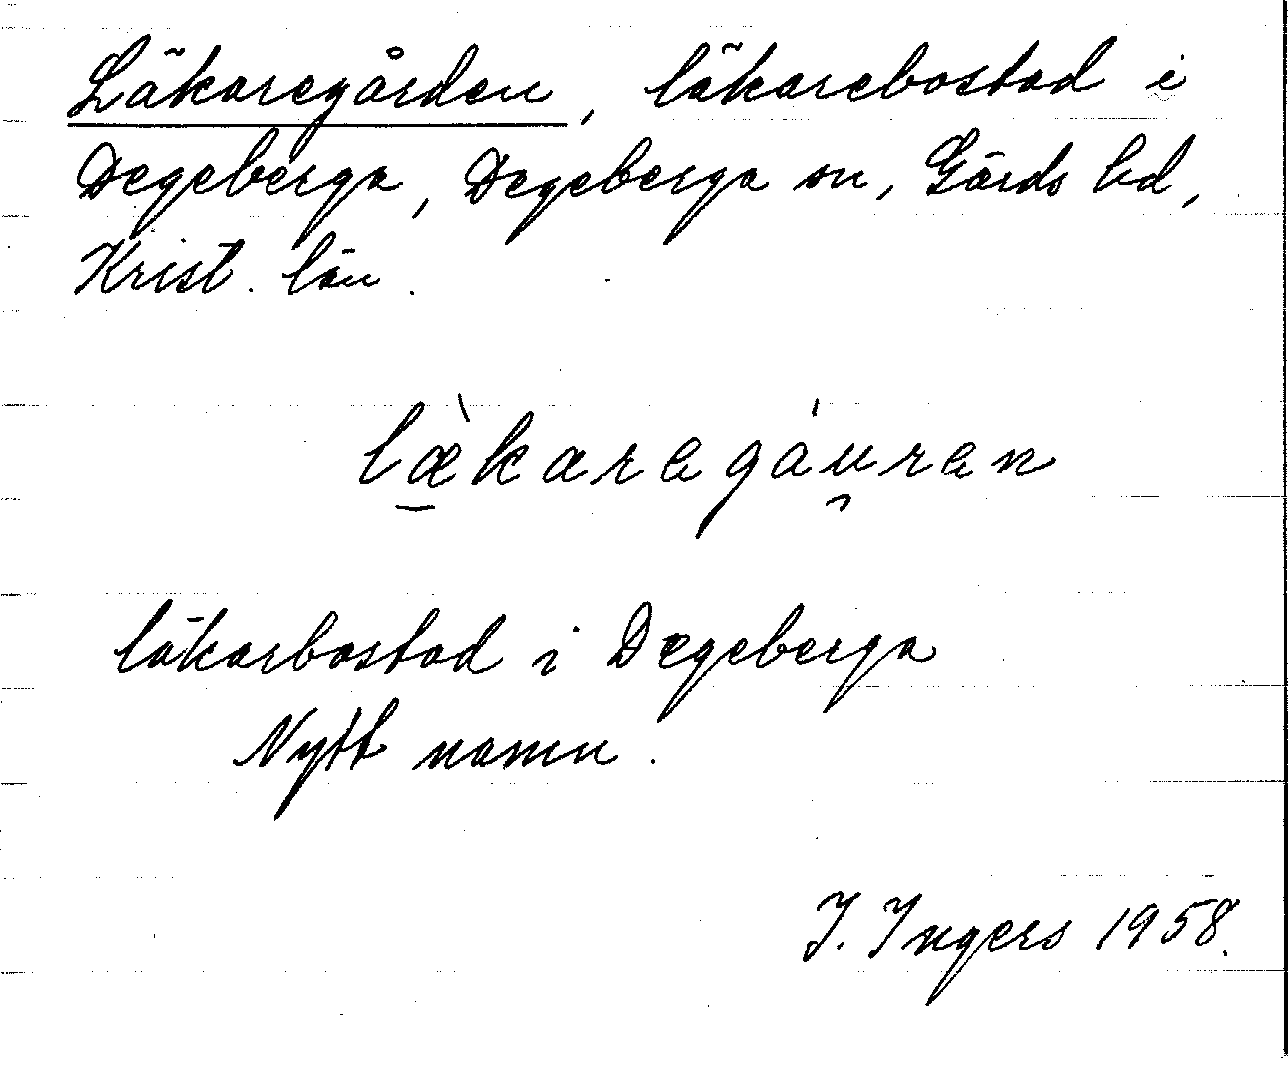 Läkaregården, läkarebostad i
Degeberga, Degeberga sn, Gärds hd,
Krist. län.
læ̠̀karagáu̯ran
läkarbostad i Degeberga
Nytt namn.
I. Ingers 1958.